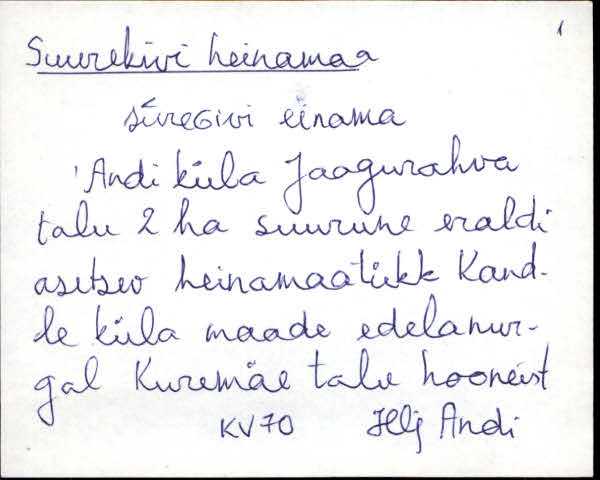 1
Suurekivi heinamaa
sūreGivi einama
'Andi küla Jaagurahva
talu 2 ha suurune eraldi
asetsev heinamaatükk Kand-
le küla maade edelanur-
gal Kuremäe talu hooneist
KV70 Hlj Andi